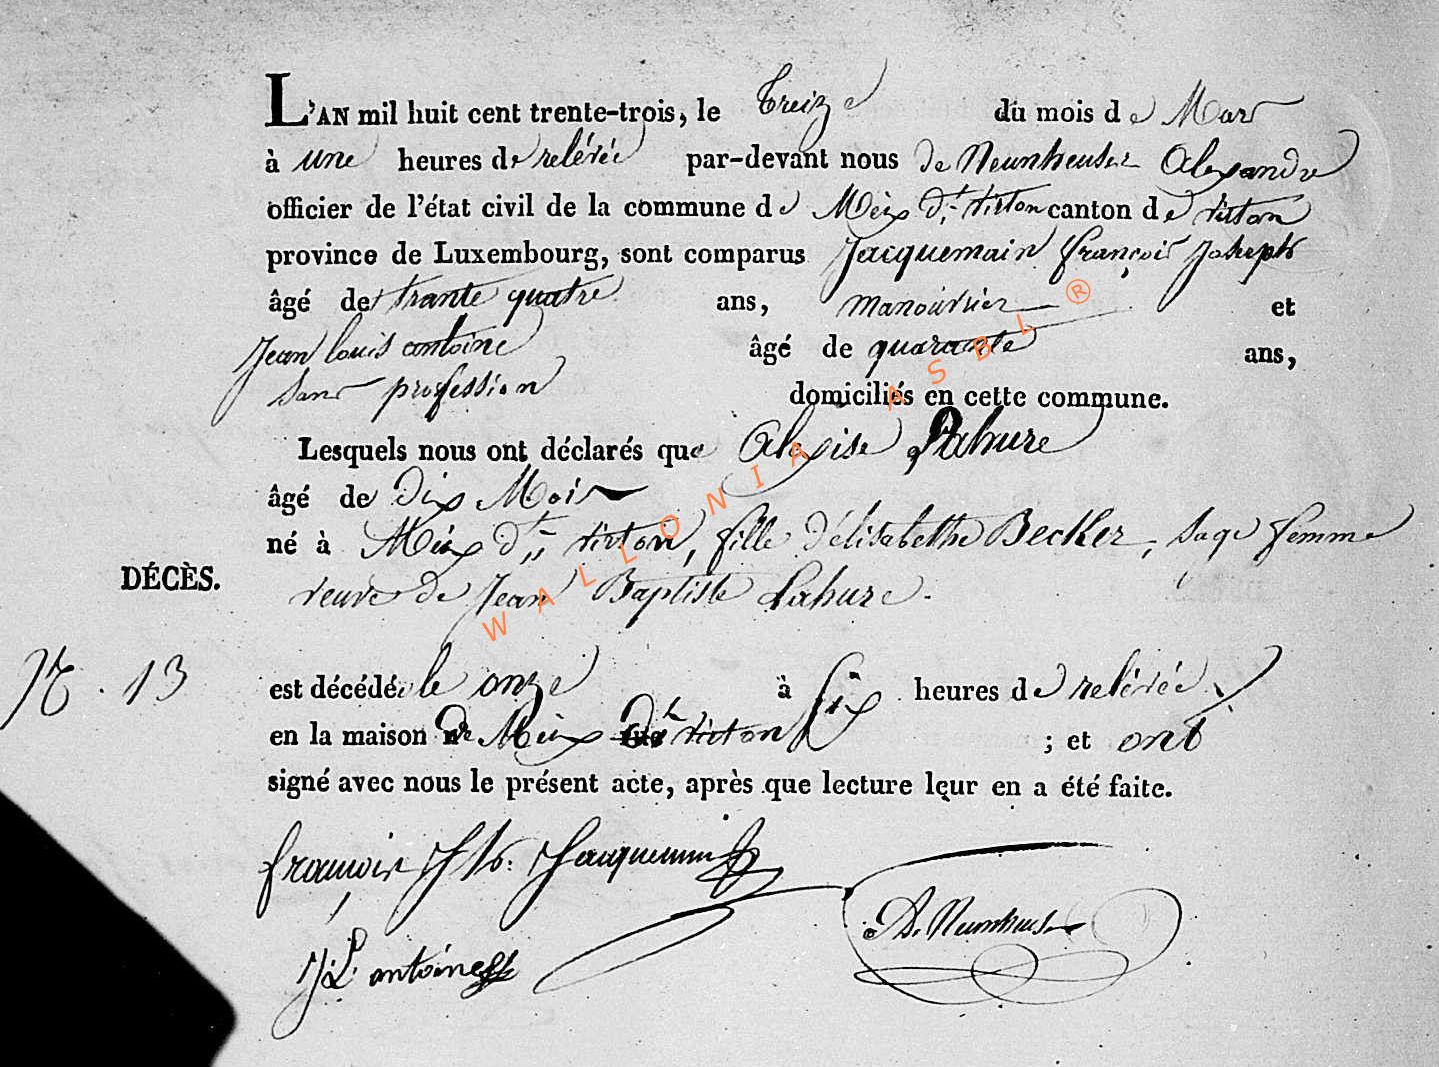 L'AN mil huit cent trente-trois, le treize du mois de Mars
à une heures de relévée par-devant nous de Neunheuser Alexandre
officier de l'état civil de la commune de Meix dt. virton canton de virton
province de Luxembourg, sont comparus Jacquemain françois Joseph
âgé de trante quatre ans, manouvrier et
Jean louis antoine âgé de quarante ans,
sans profession domiciliés en cette commune.
Lesquels nous ont déclarés que Aloyise Lahure
âgé de dix Mois
né à Meix dt. virton, fille d'élisabethe Becker, sage femme
DÉCÈS.
veuve de Jean Baptiste Lahure.
N. 13
est décédée le onze à six heures de relévée
en la maison de Meix dt virton ; et ont
signé avec nous le présent acte, après que lecture leur en a été faite.
françois Jh. Jacquemin
A. Neunheuser
J. L. antoine
WALLONIA ASBL ®